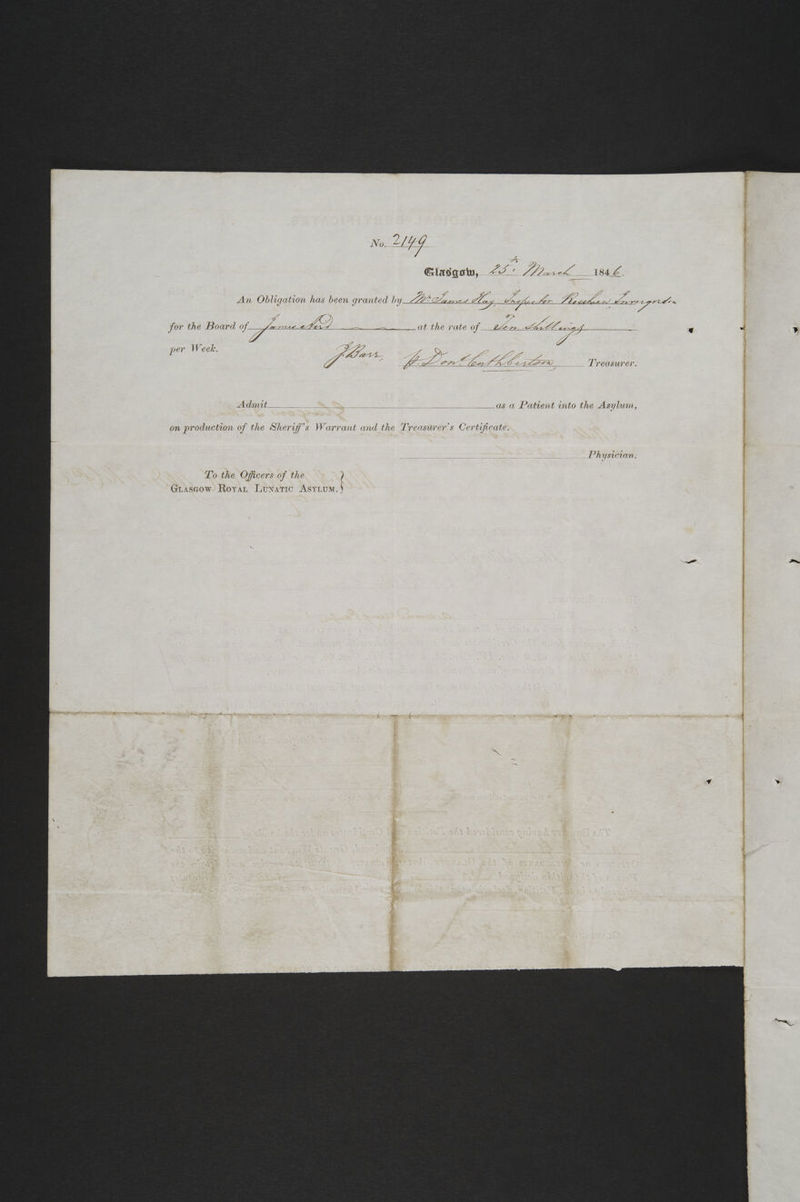 No. 2149
Glasgow, 25th March 1846
An Obligation has been granted by Mr James Hay Inspector
for the Board of at the rate of Ten Shillings
per Week.
J Barr, Cuthbertson Treasurer.
Admit as a Patient into the Asylum,
on production of the Sheriff's Warrant and the Treasurer's Certificate.
Physician.
To the Officers of the
GLASGOW ROYAL LUNATIC ASYLUM.